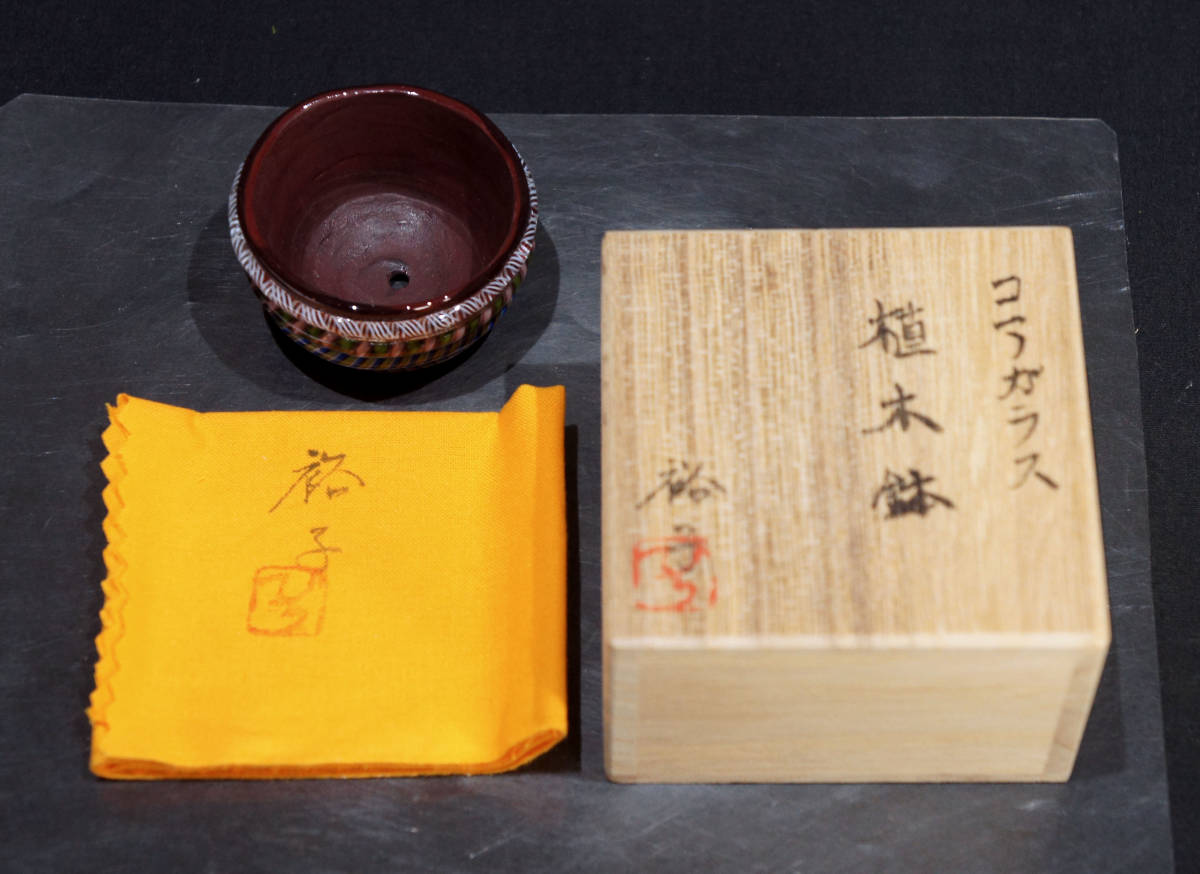 コアガラス
植木鉢
裕子
裕子